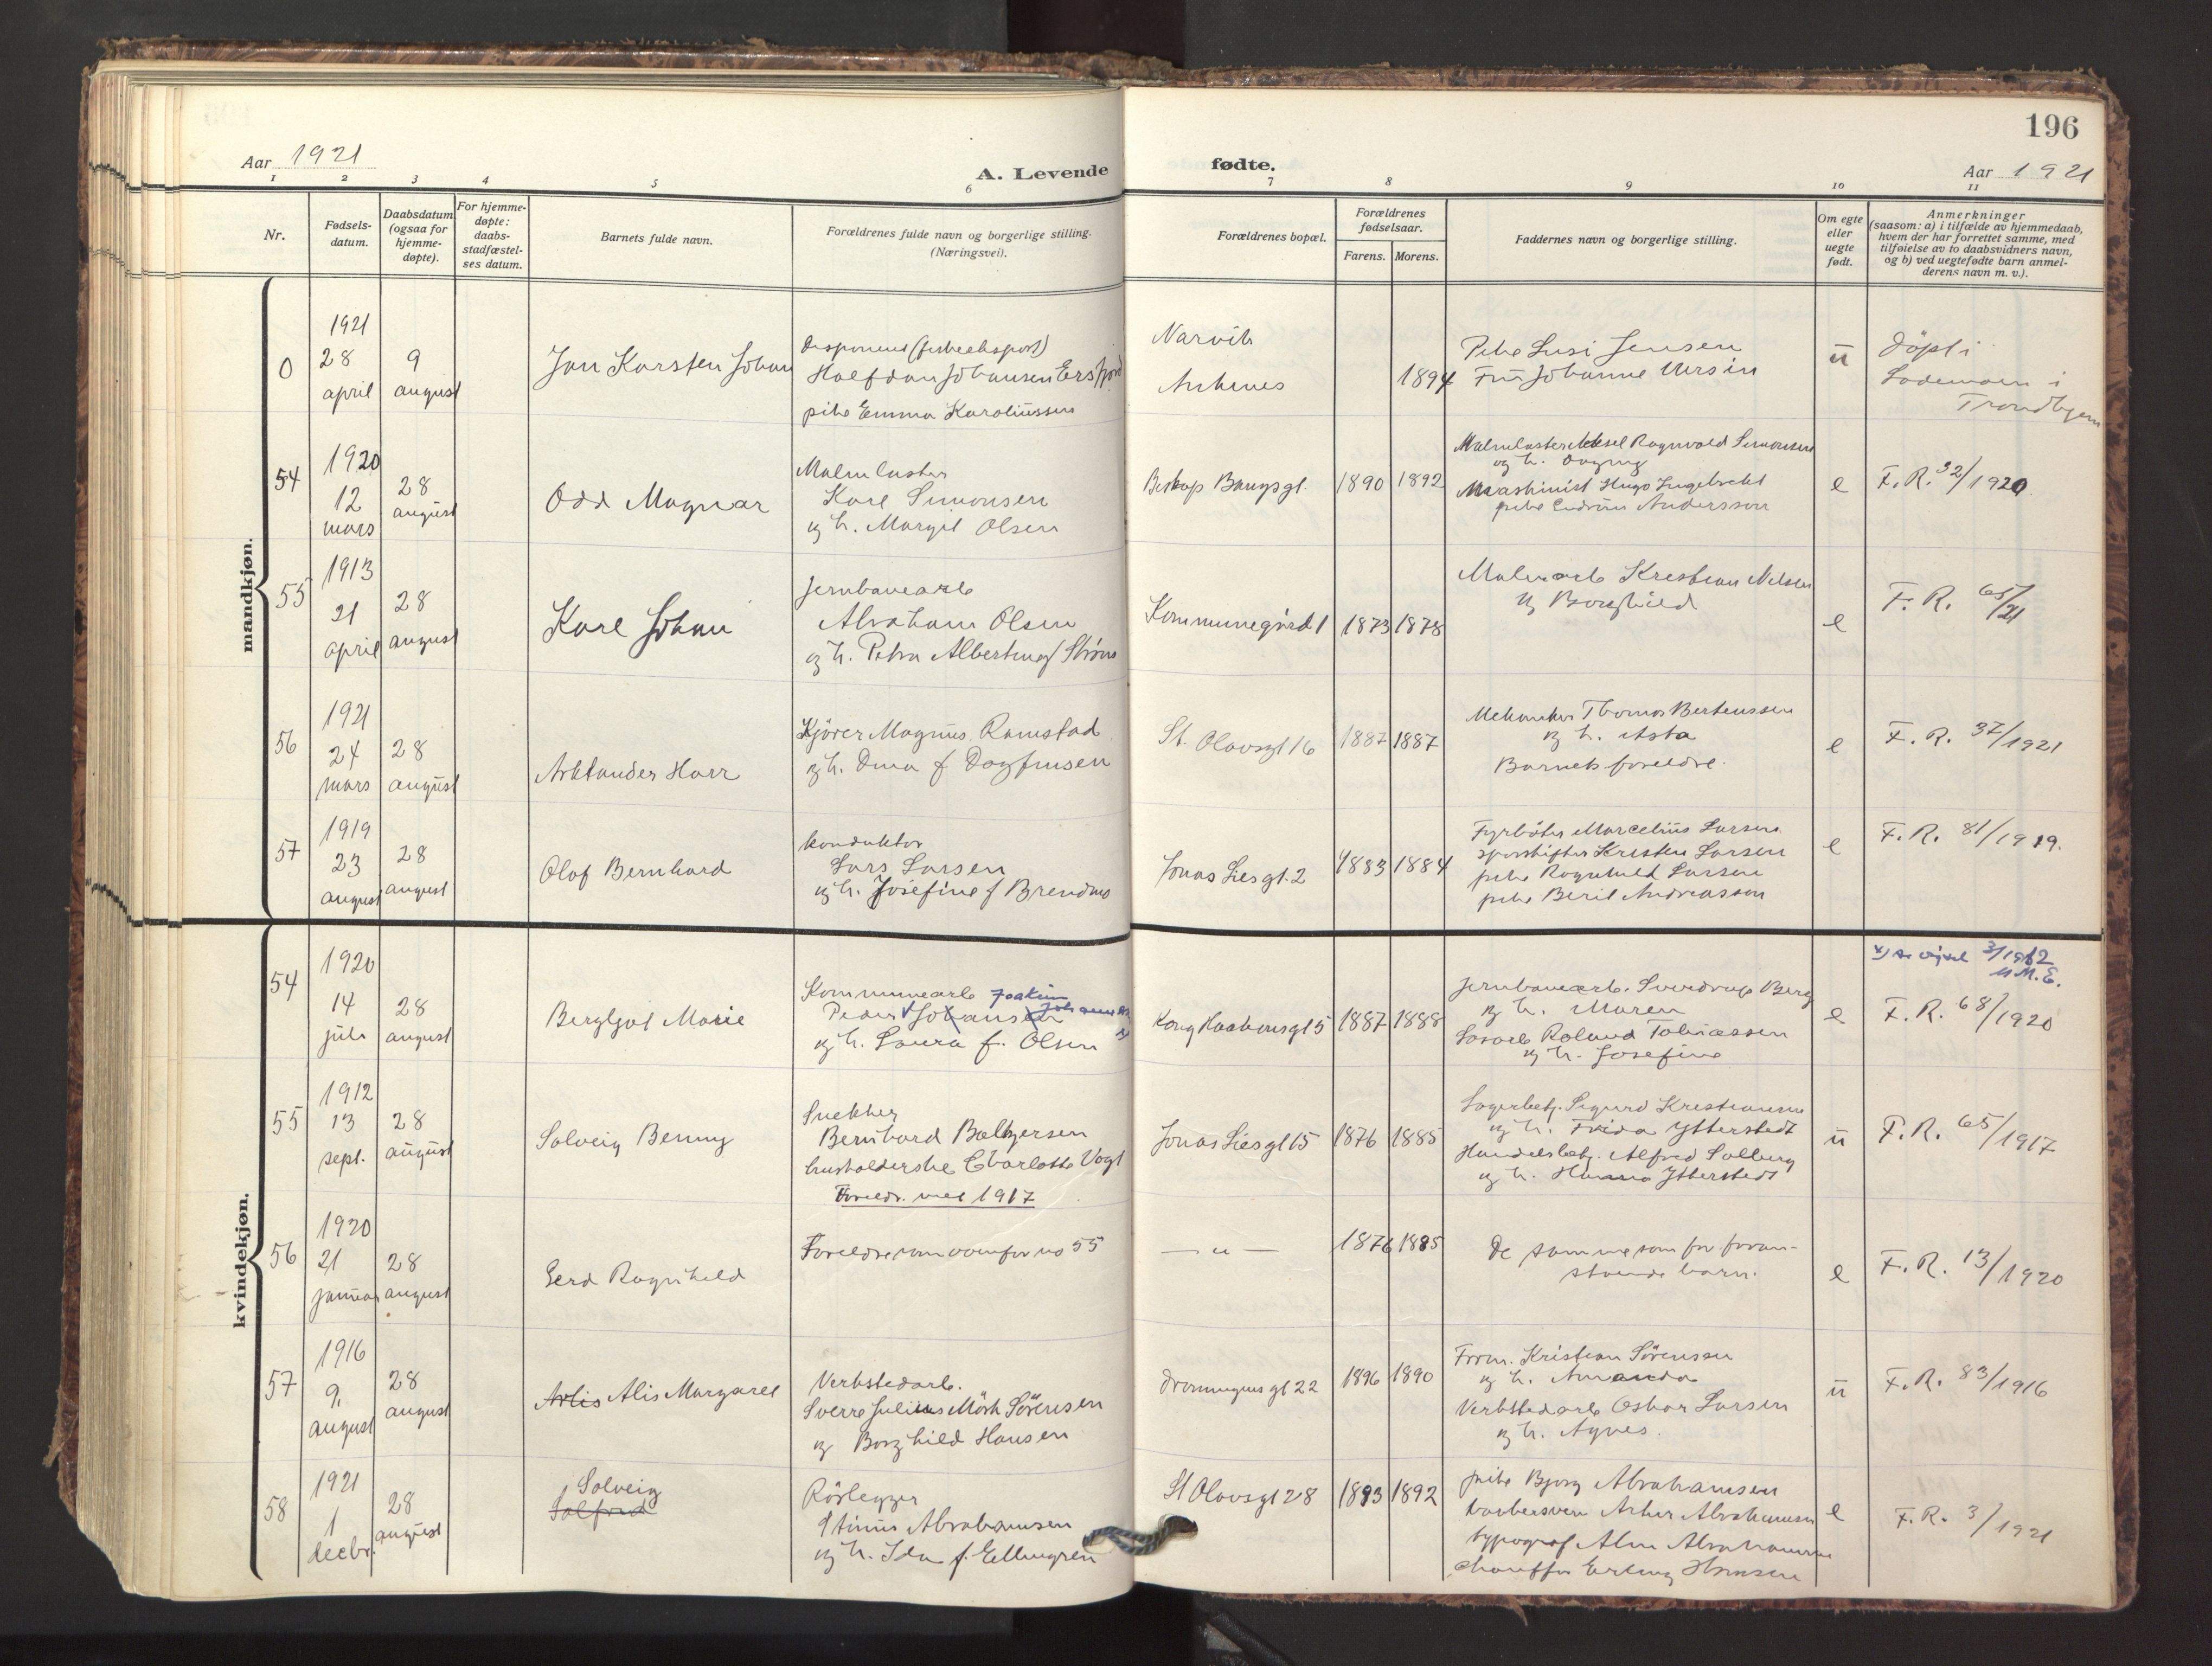 196
Aar 1921
A. Levende
fødte.
Aar 1921
1 2 3 4 5 6 7 8 9 10 11
Nr.
Fødsels-
datum.
Daabsdatum
(ogsaa for
hjemme-
døpte).
For hjemme-
døpte:
daabs-
stadfæstel-
ses datum.
Barnets fulde navn.
Forældrenes fulde navn og borgerlige stilling.
(Næringsvei).
Forældrenes bopæl.
Forældrenes
fødselsaar.
Farens. Morens.
Faddernes navn og borgerlige stilling.
Om egte
eller
uegte
født.
Anmerkninger
(saasom: a) i tilfælde av hjemmedaab,
hvem der har forrettet samme, med
tilføielse av to daabsvidners navn,
og b) ved uegtefødte barn anmel-
derens navn m. v.).
mandkjøn.
0
1921
28
april
9
august
Jan Karsten Johan
Halfdan Johansen Ersfjord
pike Emma Karoliussen
Narvik
Ankenes
1894
Pike Susi Jensen
Fru Johanne Ursin
u
døpt i
Lademoen i
Trondhjem
54
1920
12
mars
28
august
Odd Magnar
Malmlaster
Karl Simonsen
og h. Margit Olsen
Biskop Bangsgt.
1890 1892
Malmlaster Aksel Ragnvald Simonsen
og h. Dagny
Maskinist Hugo Ingebrekt
pike Gudrun Andersson
e
F. R. 32/1920
55
1913
21
april
28
august
Karl Johan
Jernbanearb
Abraham Olsen
og h. Petra Albertine f Strøm
Kommunegård 1
1873 1878
Malmarb Kristian Nilsen
og Borghild
e
F. R. 65/21
56
1921
24
mars
28
august
Arktander Harr
Kjører Magnus Ramstad
og h. Dina f Dagfinsen
St. Olavsgt 16
1887 1887
Mekaniker Thomas Bertenssen
og h. Asta
Barnets foreldre.
e
F. R. 37/1921
57
1919
23
august
28
august
Olaf Bernhard
konduktør
Lars Larsen
og h. Josefine f Brendmo
Jonas Liesgt. 2
1883 1884
Fyrbøter Marcelius Larsen
sporskifter Kristen Larsen
pike Ragnhild Larsen
pike Beril Andreasson
e
F. R. 81/1919.
kvindekjøn.
54
1920
14
juli
28
august
Bergljot Marie
Kommunearb Joakim
Peder Johansen Johannes
og h. Laura f. Olsen
Kong Haakonsgt 5
1887 1888
Jernbanearb. Sverdrup Berg
og h. Maren
Losarb Roland Tobiassen
og h. Josefine
e
3/1962
M.E.
F. R. 68/1920
55
1912
13
sept.
28
august
Solveig Benny
Snekker
Bernhard Baltzersen
husholderske Charlotte Vogt
Foreldr. viet 1917
Jonas Liesgt 15
1876 1885
Lagerbetj. Sigurd Kristiansen
og h. Frida Ytterstedt
Handelsbetj. Alfred Solberg
og h. Hanna Ytterstedt
u
F. R. 65/1917
56
1920
21
januar
28
august
Gerd Ragnhild
Foreldre som ovenfor no 55
— " —
1876 1885
De samme som for foran-
stående barn.
e
F. R. 13/1920
57
1916
9.
august
28
august
Arlis Alis Margaret
Verkstedarb.
Sverre Julius Mörk Sörensen
og Borghild Hansen
Dronningensgt 22
1896 1890
Form. Kristian Sörensen
og h. Amanda
Verkstedarb Oskar Larsen
og h. Agnes.
u
F. R. 83/1916
58
1921
1
decbr.
28
august
Solveig
Solfrid
Rörlegger
Stinius Abrahamsen
og h. Ida f. Ellingren
St Olavsgt 28
1893 1892
pike Bjorg Abrahamsen
barbersven Artur Abrahamsen
typograf Alm Abrahamsen
chauffør Erling Hansen
e
F. R. 3/1921